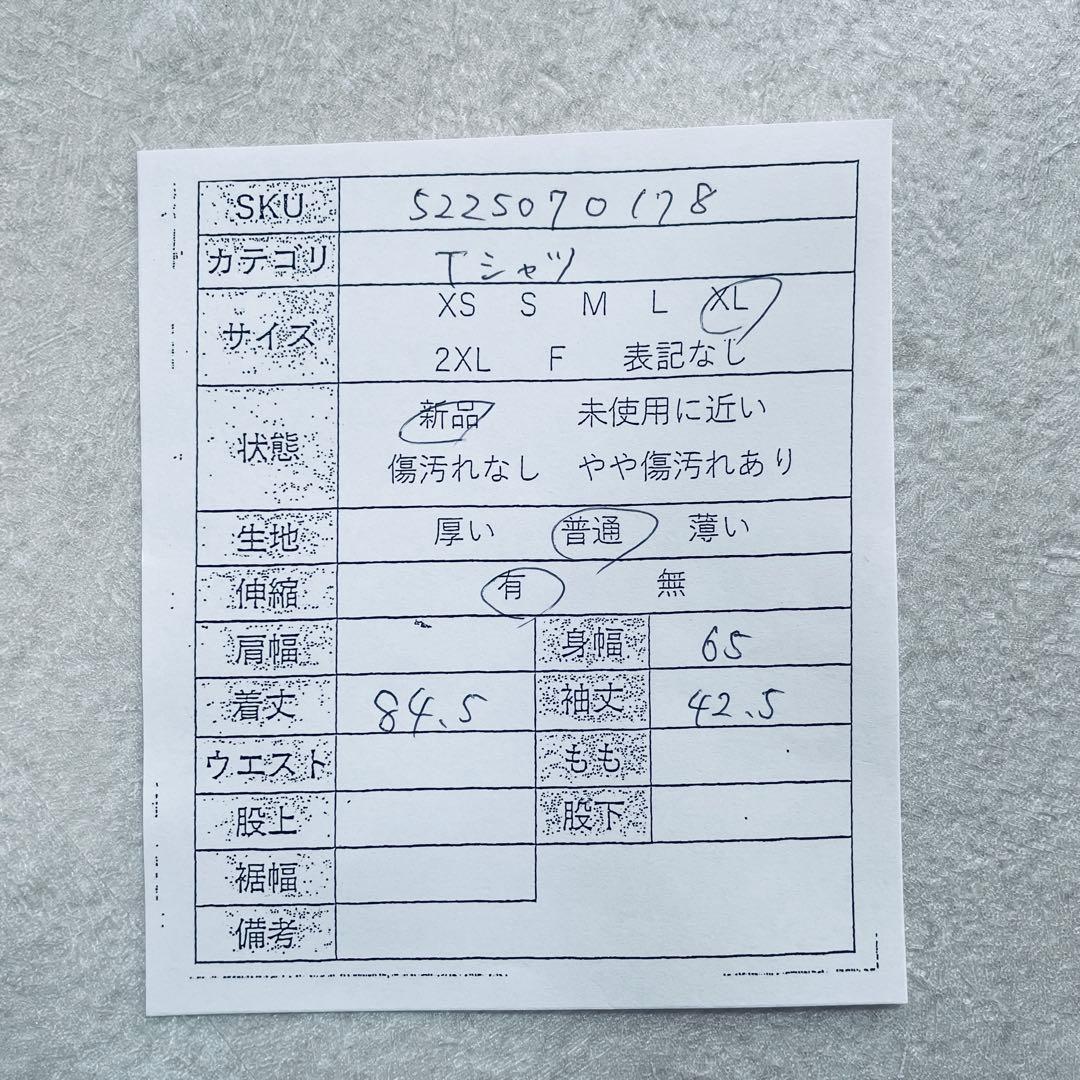 SKU 5225070178
カテゴリ Tシャツ
サイズ XS S M L XL
2XL F 表記なし
状態 新品 未使用に近い
傷汚れなし やや傷汚れあり
生地 厚い 普通 薄い
伸縮 有 無
肩幅 身幅 65
着丈 84.5 袖丈 42.5
ウエスト もも
股上 股下
裾幅
備考